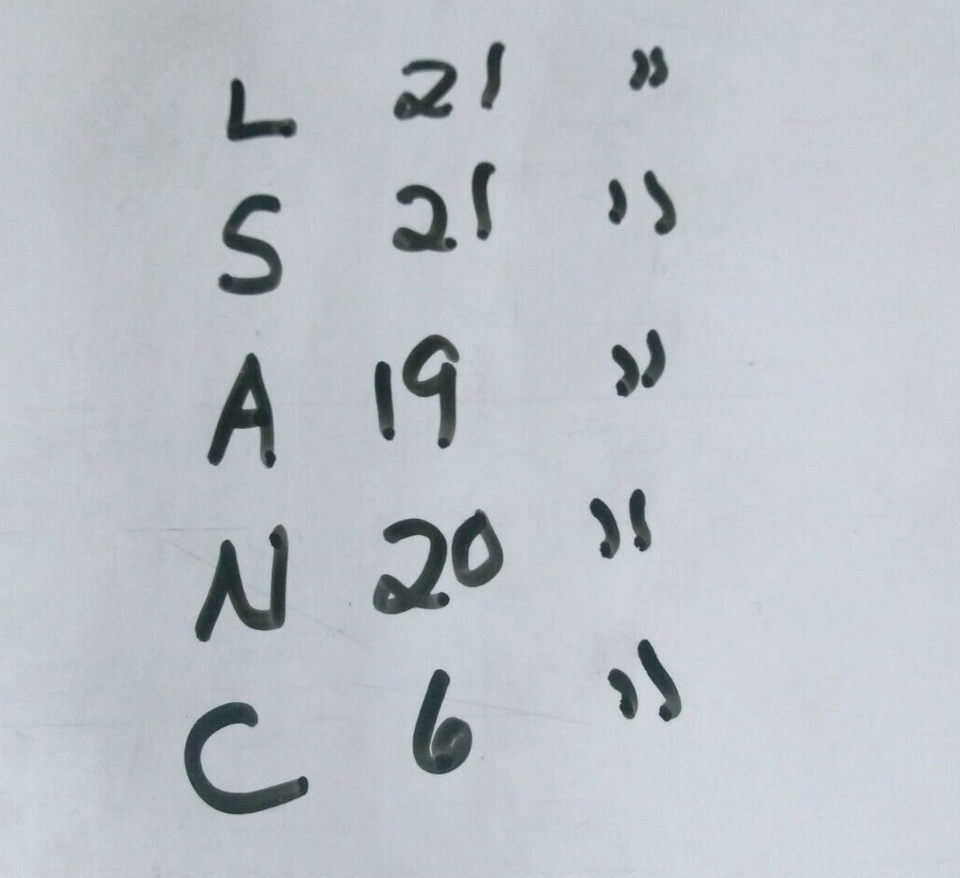 L 21 "
S 21 "
A 19 "
N 20 "
C 6 "